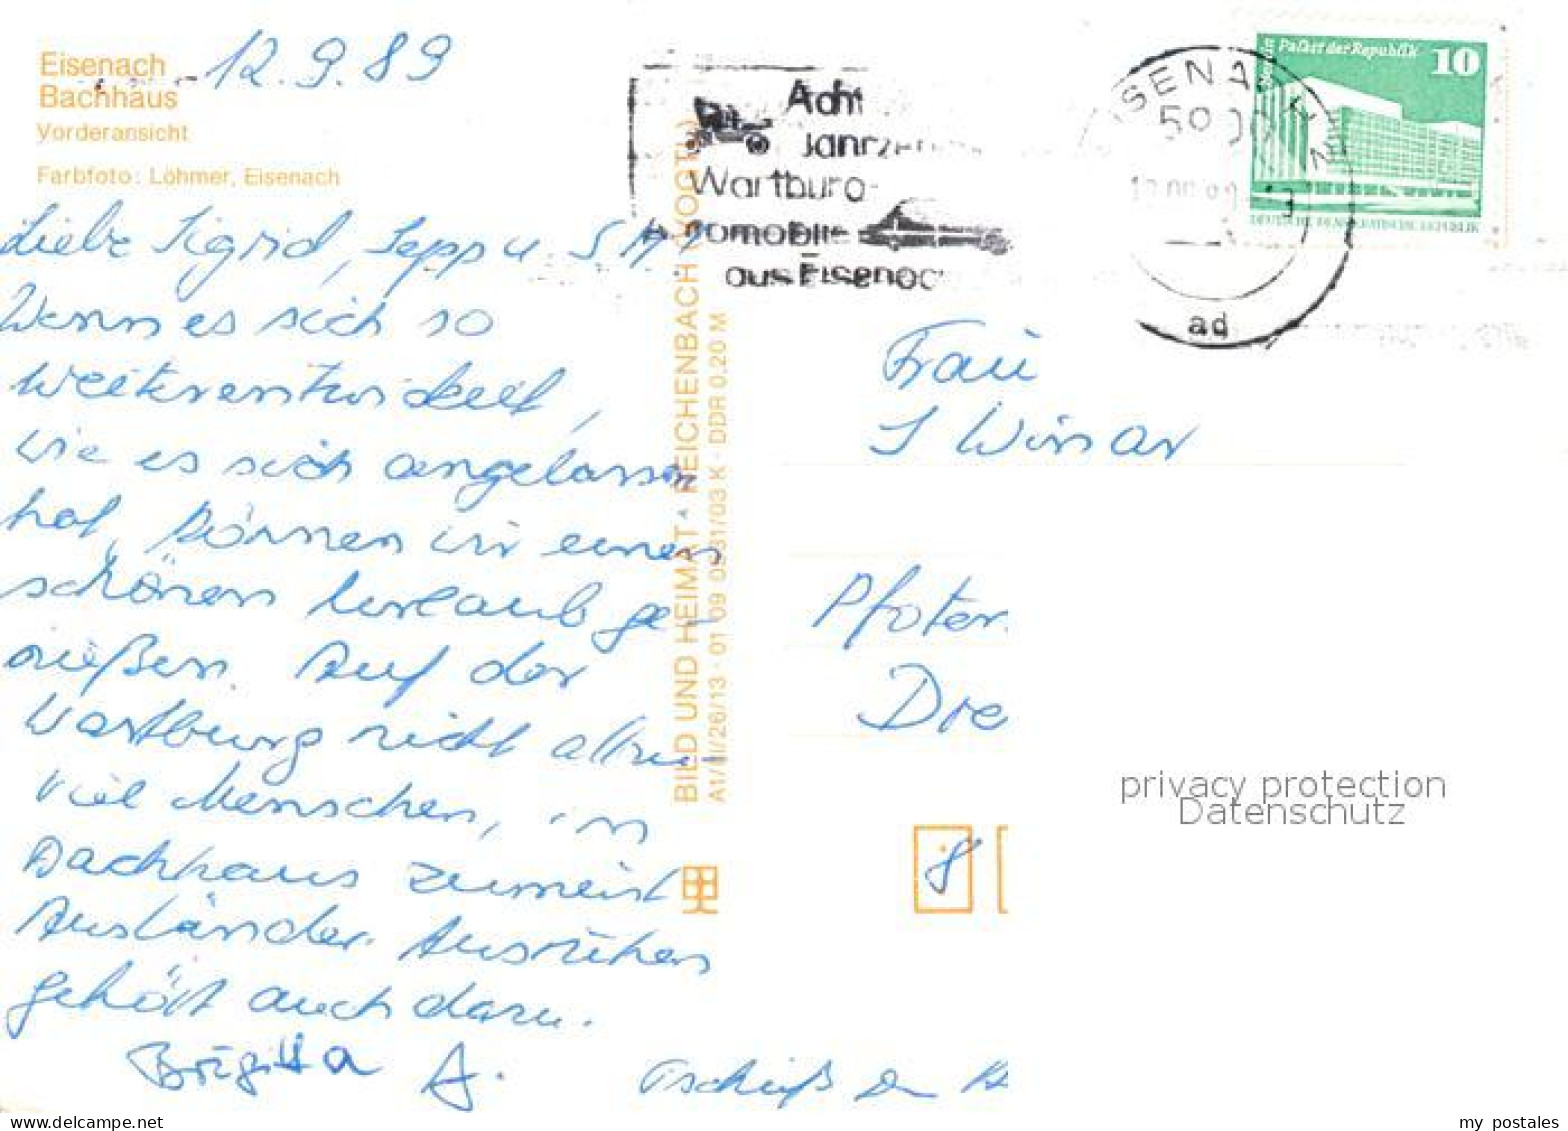 Eisenach
Bachhaus
Vorderansicht
Farbfoto: Löhmer, Eisenach
12.9.89
Liebe Sigrid, Sepp u
Wenn es sich so
weiterentwickelt,
wie es sich angelassen
hat, können wir einen
schönen Urlaub ge-
nießen. Auf der
Wartburg nicht allzu
viel Menschen, im
Bachhaus zumeist
Ausländer. Ausruhen
gehört auch dazu.
Brigitta A.
BILD UND HEIMAT · REICHENBACH (VOGTL)
A1/III/26/13 · 01 09 0931/03 K · DDR 0.20 M
Acht
Jahrze
Wartburg-
omobile
aus Eisenac
EISENACH
ad
Palast der Republik
10
DEUTSCHE DEMOKRATISCHE REPUBLIK
Frau
Dre
8
privacy protection
Datenschutz
my postales